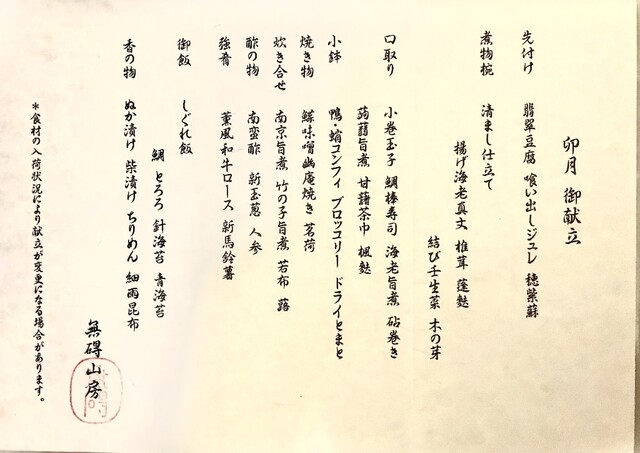 卯月 御献立
先付け 翡翠豆腐 喰い出しジュレ 穂紫蘇
煮物椀 清まし仕立て
揚げ海老真丈 椎茸 蓬麩
結び壬生菜 木の芽
口取り 小巻玉子 鯛棒寿司 海老旨煮 砧巻き
蒟蒻旨煮 甘藷茶巾 楓麩
小鉢 鴨・蛸コンフィ ブロッコリー ドライとまと
焼き物 鰈味噌幽庵焼き 茗荷
炊き合せ 南京旨煮 竹の子旨煮 若布 蕗
酢の物 南蛮酢 新玉葱 人参
強肴 薫風和牛ロース 新馬鈴薯
御飯 しぐれ飯
鯛 とろろ 針海苔 青海苔
香の物 ぬか漬け 柴漬け ちりめん 細雨昆布
＊食材の入荷状況により献立が変更になる場合があります。
無碍山房